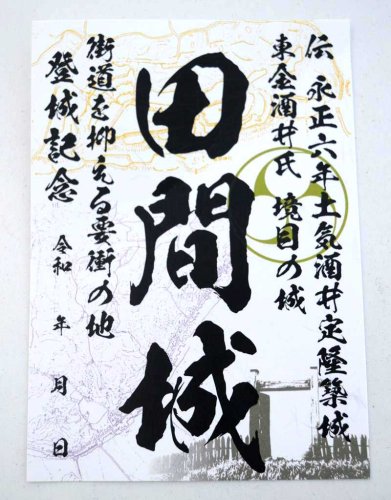 伝 永正六年土気酒井定隆築城
東金酒井氏 境目の城
田間城
街道を抑える要衝の地
登城記念
令和 年 月 日